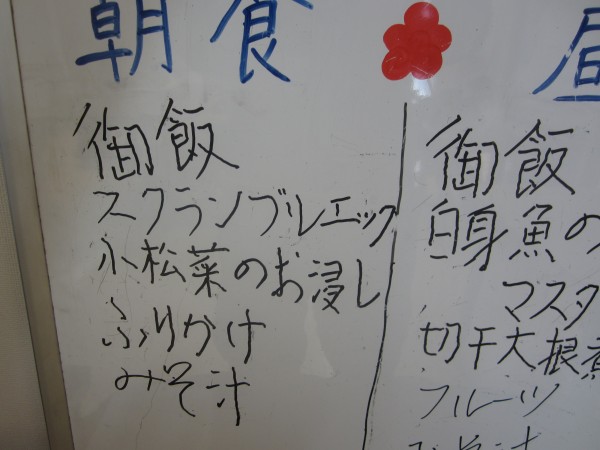 朝食
御飯
スクランブルエック
小松菜のお浸し
ふりかけ
みそ汁
昼
御飯
白身魚の
マスタ
切干大根煮
フルーツ
みそ汁